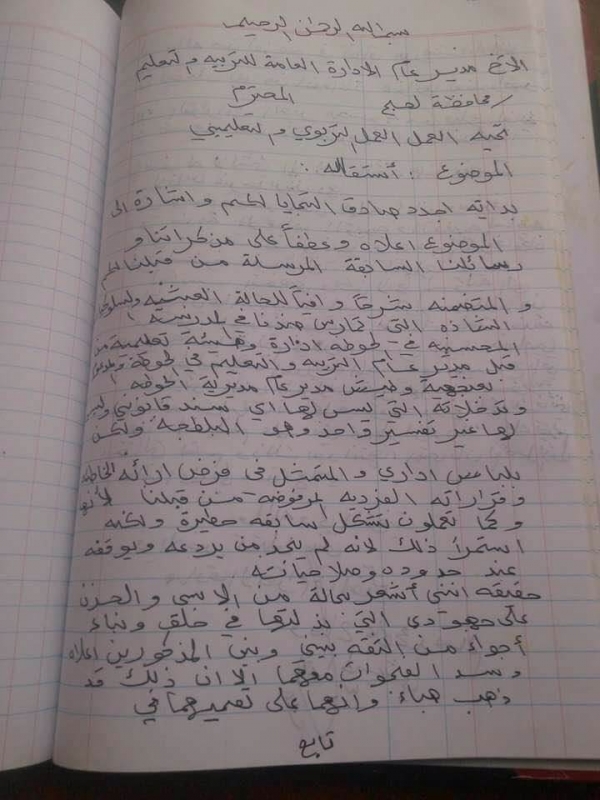 بسم الله الرحمن الرحيم
الاخ مدير عام الادارة العامة للتربيه وتعليم
/محافظة لحج    المحترم
تحيه العمل العمل لتربوي وتعليمي
الموضوع : أستقاله :
بدايه اجدد صادق التحايا لكم واشارة الى
الموضوع اعلاه وعطفاً على مذكراتنا و
رسائلنا السابقة المرسلة من قبلنا لكم
والمتضمنه شرحاً وافياً للحالة العبثيه
الشاذه التي تمارس ضدنا في المدرسة
المحسنيه في لحوطه ادارة وهيئة تعليمية من
قبل مدير عام التربيه والتعليم في لحوطة
بعنجهية وطيش مدير عام مديرية الحوطه
وتدخلاته التي ليس لها اي سند قانوني وليس
لها غير تفسير واحد وهو البلطجة ولكن
بلباس اداري والمتمثل في فرض ارائه الخاطئه
وقراراته الفرديه المرفوضه من قبلنا لأنها
وكما تعلمون تشكل سابقه خطيرة ولكنه
استمرأ ذلك لانه لم يجد من يردعه ويوقفه
عند حدوده وصلاحياته
حقيقه انني أشعر بحالة من الاسى والحزن
على جهودي التي بذلتها في خلق وبناء
أجواء من الثقه بيني وبين المذكورين اعلاه
وسد الفجوات معهما الا ان ذلك قد
ذهب هباء وانهما على تعميهما في
تابع